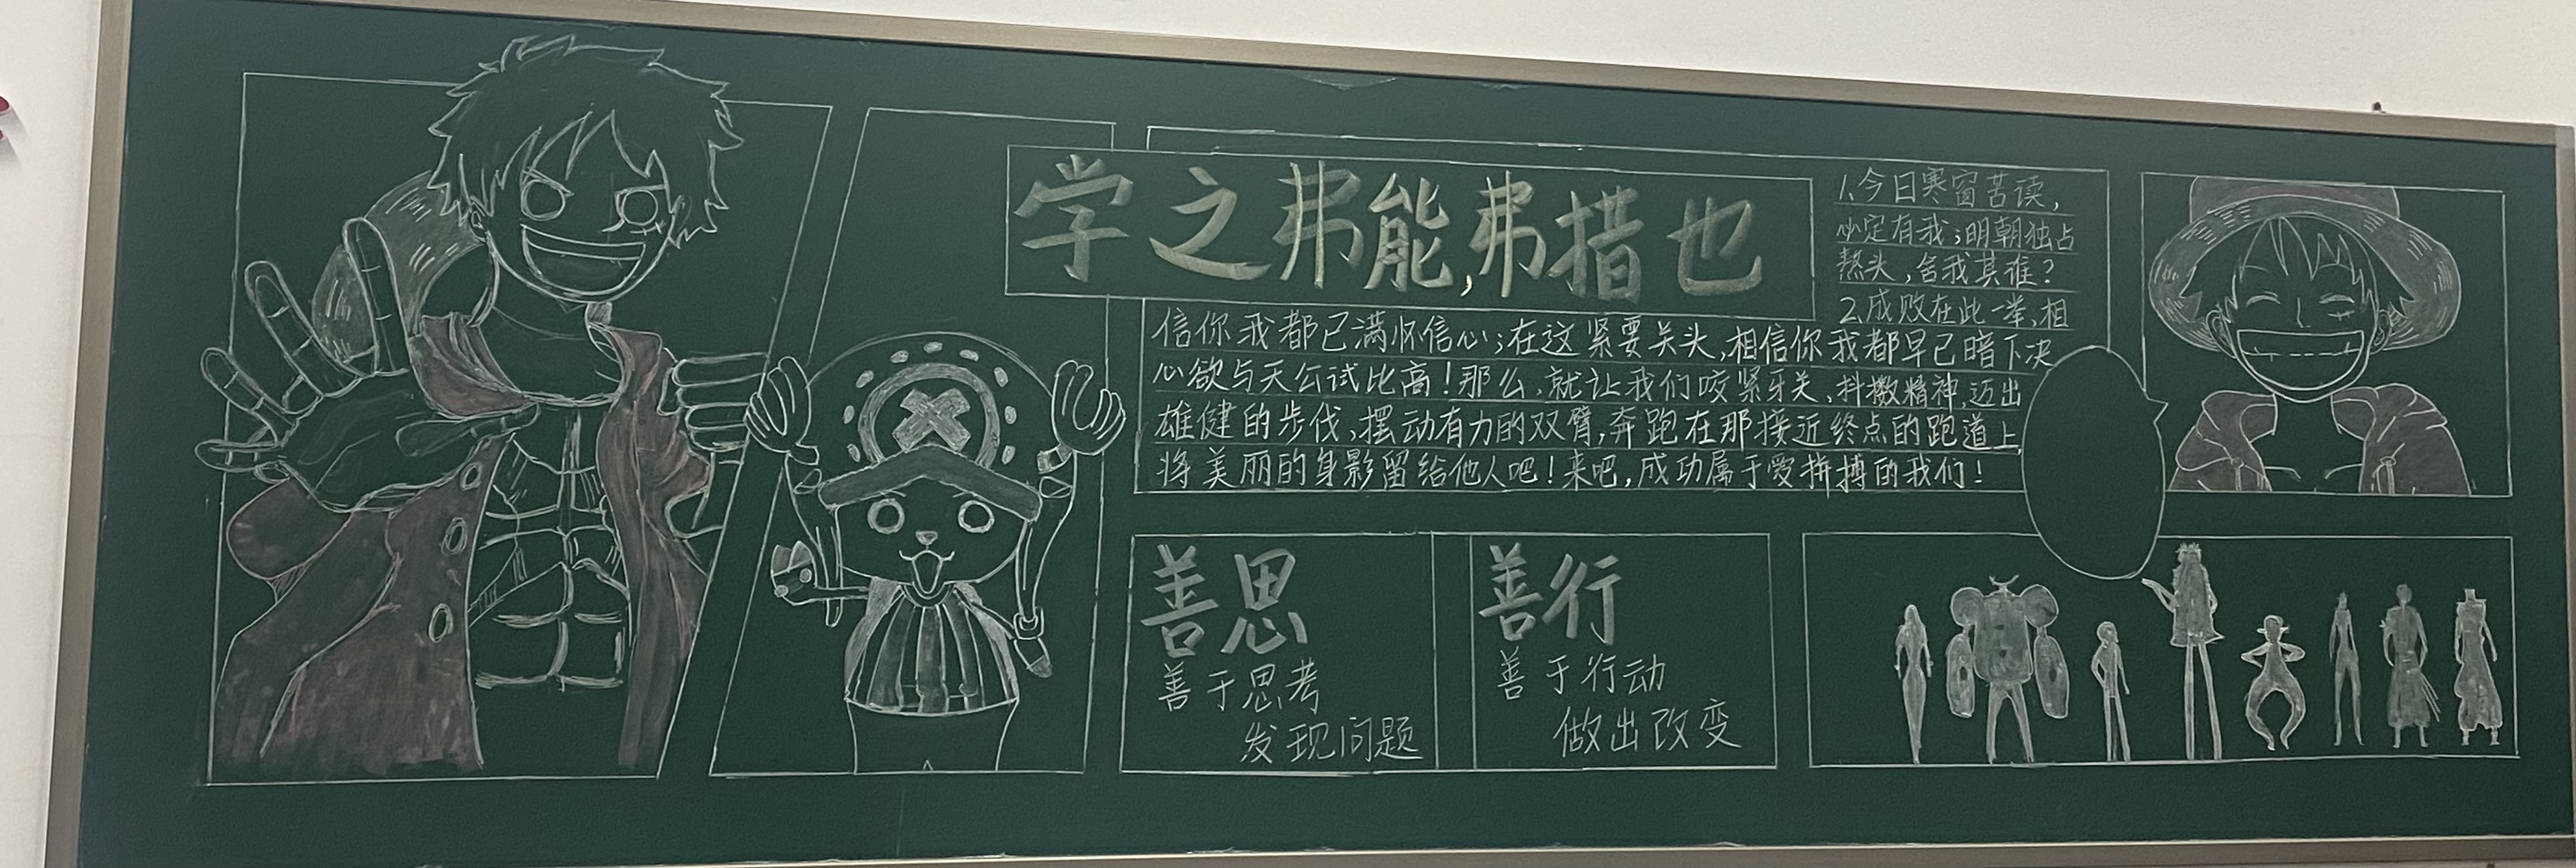 学之弗能,弗措也
1.今日寒窗苦读,
必定有我;明朝独占
熬头,舍我其谁?
2.成败在此一举,相
信你我都已满怀信心;在这紧要关头,相信你我都早已暗下决
心欲与天公试比高!那么,就让我们咬紧牙关,抖擞精神,迈出
雄健的步伐,摆动有力的双臂,奔跑在那接近终点的跑道上,
将美丽的身影留给他人吧!来吧,成功属于爱拼搏的我们!
善思
善于思考
发现问题
善行
善于行动
做出改变